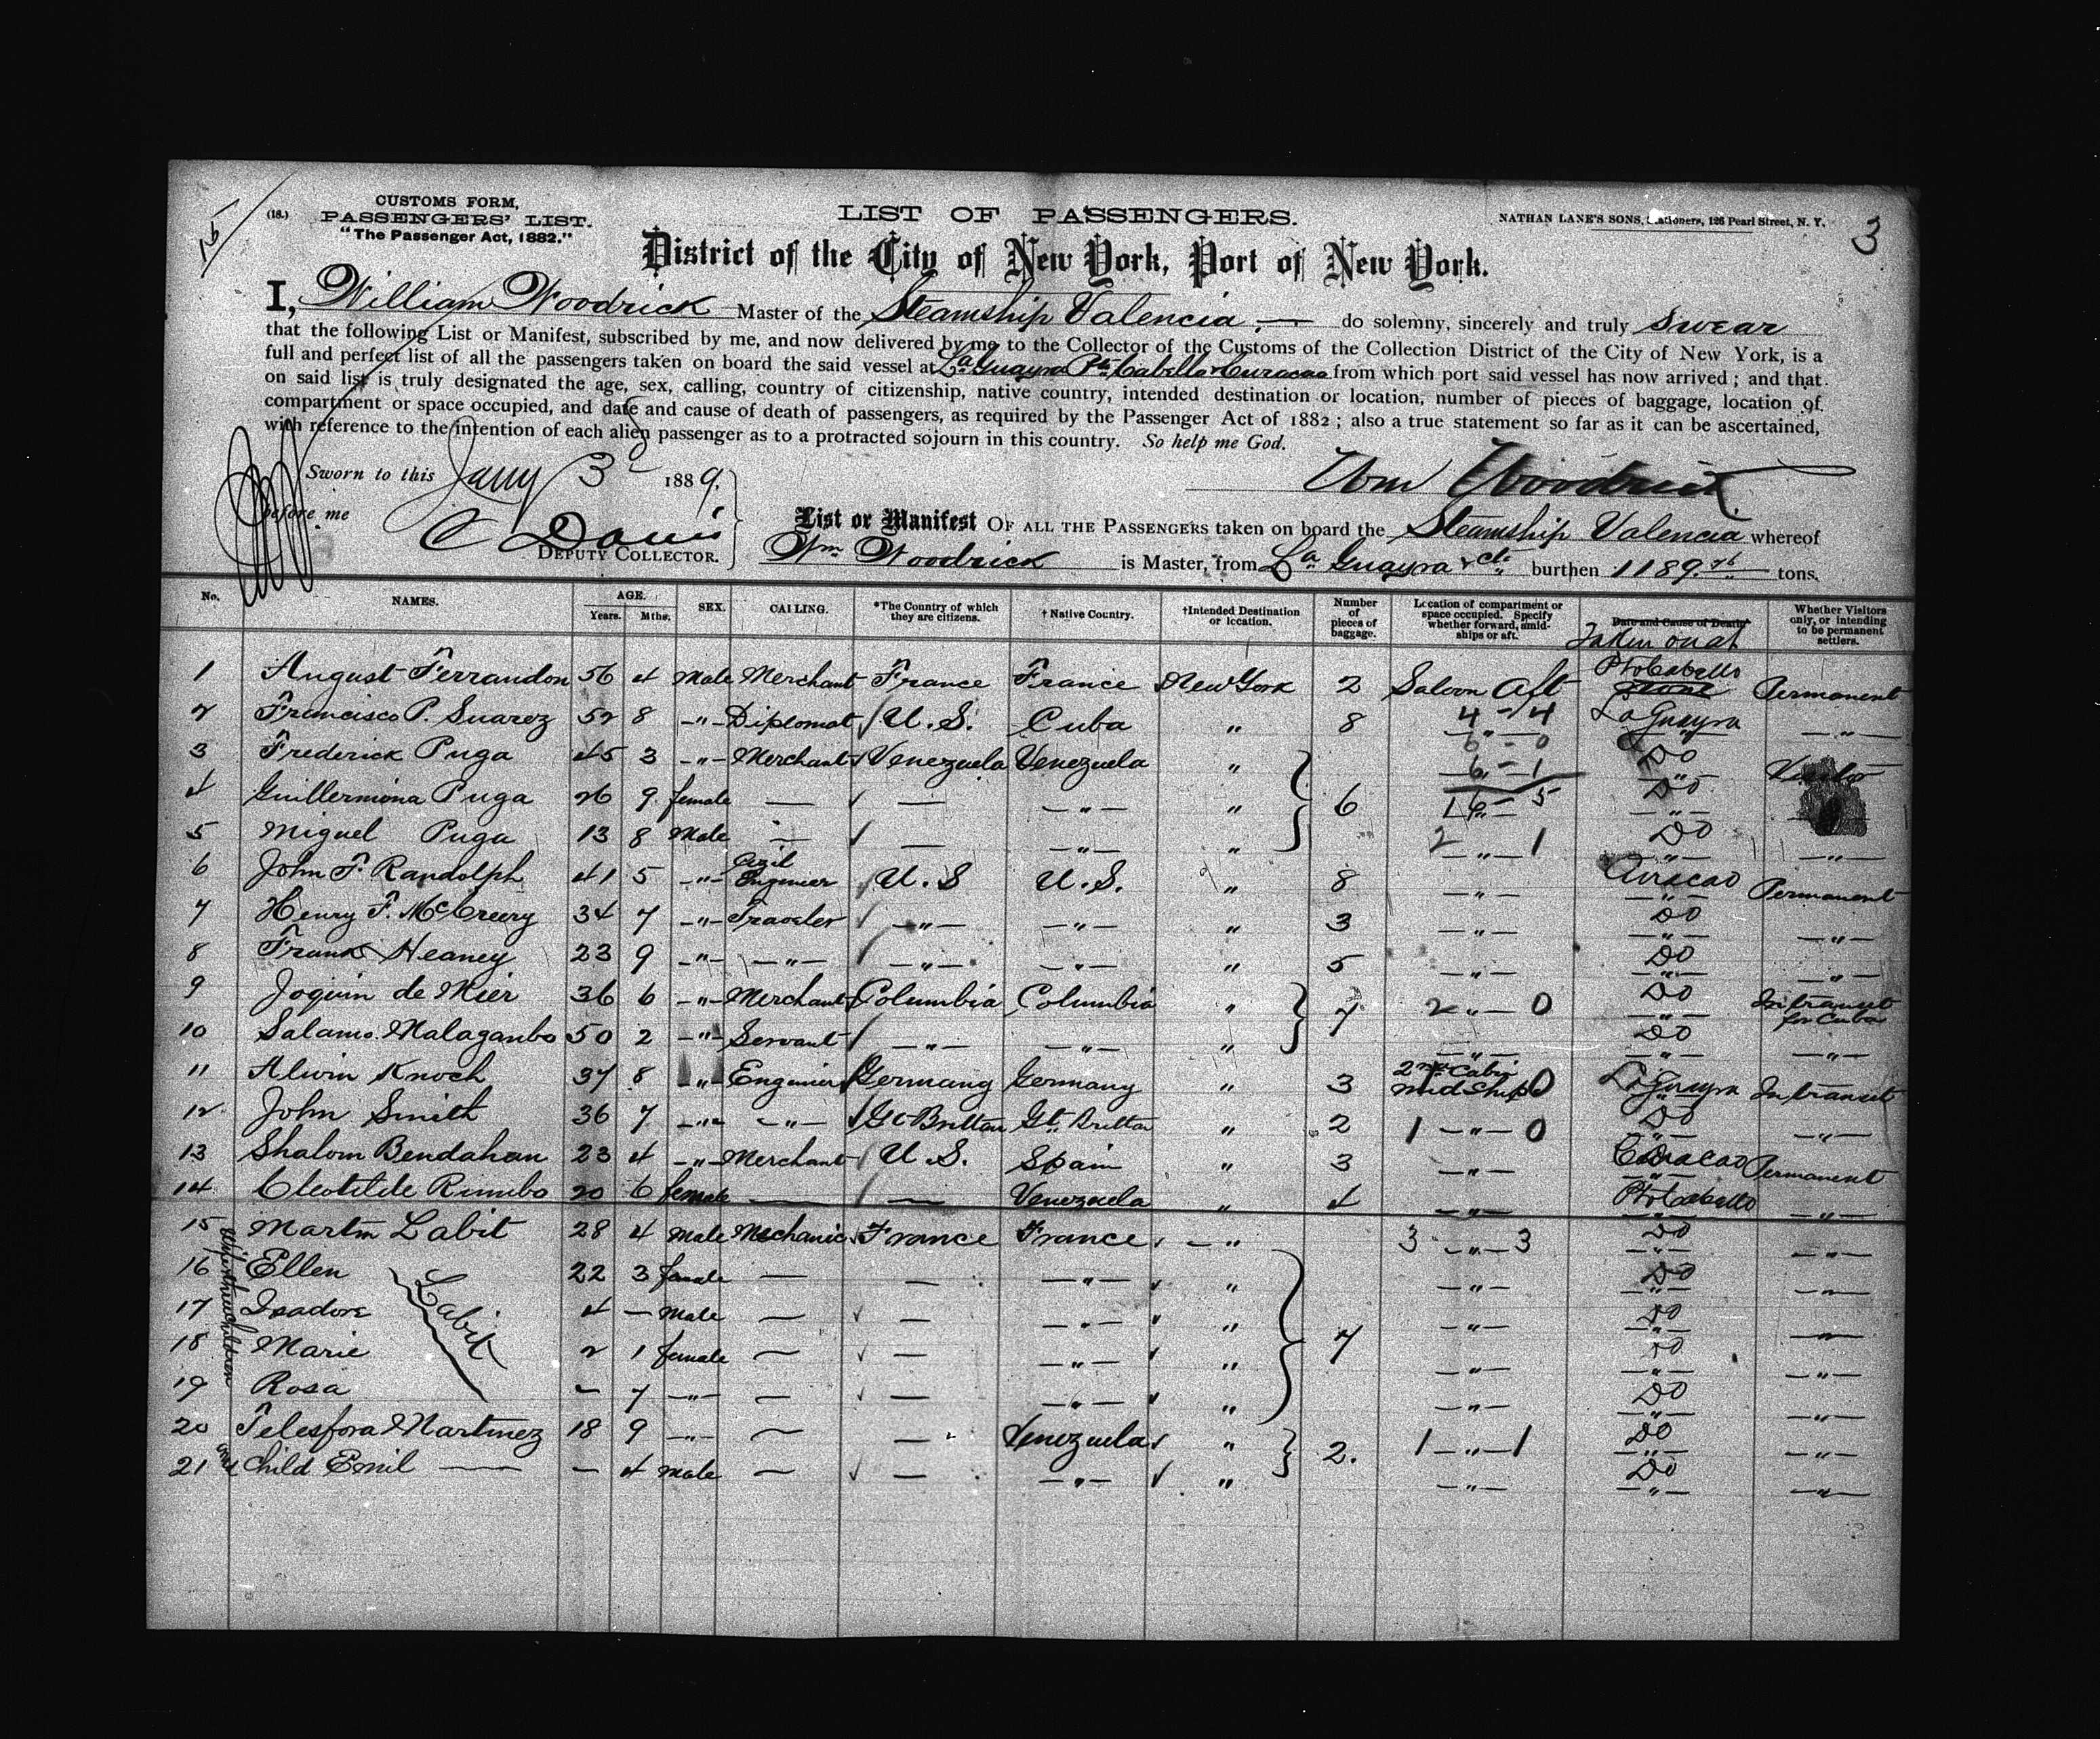 15
(18.)
CUSTOMS FORM,
PASSENGERS' LIST.
"The Passenger Act, 1882."
LIST OF PASSENGERS.
NATHAN LANE'S SONS, Stationers, 126 Pearl Street, N. Y.
3
District of the City of New York, Port of New York.
I, William Woodrick Master of the Steamship Valencia, do solemny, sincerely and truly swear
that the following List or Manifest, subscribed by me, and now delivered by me to the Collector of the Customs of the Collection District of the City of New York, is a
full and perfect list of all the passengers taken on board the said vessel at La Guayra Pto Cabello & Curacao from which port said vessel has now arrived; and that
on said list is truly designated the age, sex, calling, country of citizenship, native country, intended destination or location, number of pieces of baggage, location of
compartment or space occupied, and date and cause of death of passengers, as required by the Passenger Act of 1882; also a true statement so far as it can be ascertained,
with reference to the intention of each alien passenger as to a protracted sojourn in this country. So help me God.
Sworn to this Jany 3d 1889.
Wm Woodrick
before me
C Davis
DEPUTY COLLECTOR.
List or Manifest OF ALL THE PASSENGERS taken on board the Steamship Valencia whereof
Wm Woodrick is Master, from La Guayra & cts burthen 1189.76 tons.
No. NAMES. AGE. Years. Mths. SEX. CALLING. *The Country of which they are citizens. † Native Country. †Intended Destination or location. Number of pieces of baggage. Location of compartment or space occupied. Specify whether forward, amidships or aft. Date and Cause of Death Taken on at Whether Visitors only, or intending to be permanent settlers.
1 August Ferrandon 56 4 Male Merchant France France New York 2 Saloon Aft Pto Cabello Permanent
2 Francisco P. Suarez 52 8 " Diplomat U.S. Cuba " 8 4 - 4 La Guayra "
3 Frederick Puga 45 3 " Merchant Venezuela Venezuela " 6 - 1 Do
4 Guillermina Puga 26 9 female — — " " 6 16 - 5 Do
5 Miguel Puga 13 8 Male — — " " 2 " 1 Do "
6 John F. Randolph 41 5 " Civil Engineer U.S U.S. " 8 " Curacao Permanent
7 Henry F. McCreery 34 7 " Traveler " " " 3 " Do "
8 Frank Heaney 23 9 " " " " " 5 " Do "
9 Joquin de Mier 36 6 " Merchant Columbia Columbia " 7 2 " 0 Do In transit for Cuba
10 Salamo Malaganbo 50 2 " Servant " " " " Do "
11 Alwin Knoch 37 8 " Engineer Germany Germany " 3 2nd Cabin Mid Ship 0 La Guayra In transit
12 John Smith 36 7 " " Gt Brittan Gt. Brittan " 2 1 " 0 Do "
13 Shalom Bendahan 23 4 " Merchant U.S. Spain " 3 " Curacao Permanent
14 Cleotilde Rimbo 20 6 female — — Venezuela " 4 " Pto Cabello "
15 Martin Labit 28 4 Male Mechanic France France " 3 " 3 Do "
16 Ellen 22 3 female — — " " " Do "
17 Isadore Labit 4 — Male — — " " " Do "
18 Marie 2 1 female — — " " 7 " Do "
19 Rosa - 7 " — — " " " Do "
Wife & three children
20 Telesfora Martinez 18 9 " — — Venezuela " 2. 1 " 1 Do "
21 and Child Emil — - 4 male — — " " " Do "